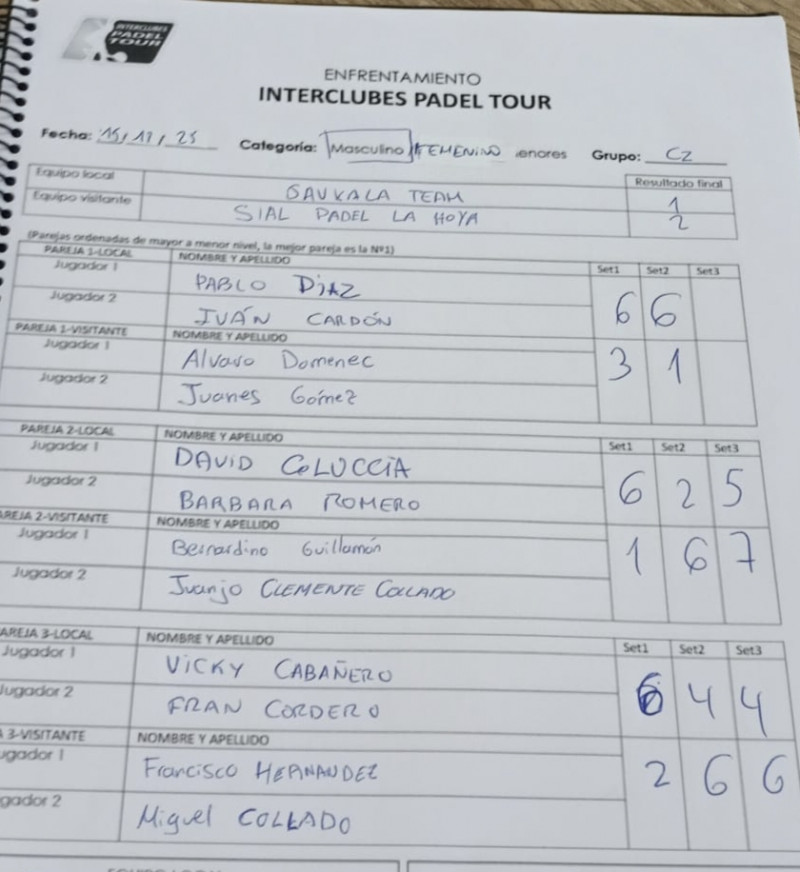 INTERCLUBES PADEL TOUR
ENFRENTAMIENTO
INTERCLUBES PADEL TOUR
Fecha: 15/11/25 Categoría: Masculino / FEMENINO enores Grupo: C2
Equipo local GAUKALA TEAM Resultado final 1
Equipo visitante SIAL PADEL LA HOYA 2
(Parejas ordenadas de mayor a menor nivel, la mejor pareja es la Nº1)
PAREJA 1-LOCAL NOMBRE Y APELLIDO Set1 Set2 Set3
Jugador 1 PABLO DÍAZ 6 6
Jugador 2 IVÁN CARDÓN
PAREJA 1-VISITANTE NOMBRE Y APELLIDO
Jugador 1 Alvaro Domenec 3 1
Jugador 2 Juanes Gómez
PAREJA 2-LOCAL NOMBRE Y APELLIDO Set1 Set2 Set3
Jugador 1 DAVID COLUCCIA 6 2 5
Jugador 2 BARBARA ROMERO
AREJA 2-VISITANTE NOMBRE Y APELLIDO
Jugador 1 Bernardino Guillamón 1 6 7
Jugador 2 Juanjo CLEMENTE COLLADO
AREJA 3-LOCAL NOMBRE Y APELLIDO Set1 Set2 Set3
Jugador 1 VICKY CABAÑERO 6 4 4
Jugador 2 FRAN CORDERO
A 3-VISITANTE NOMBRE Y APELLIDO
ugador 1 Francisco HERNANDEZ 2 6 6
gador 2 Miguel COLLADO